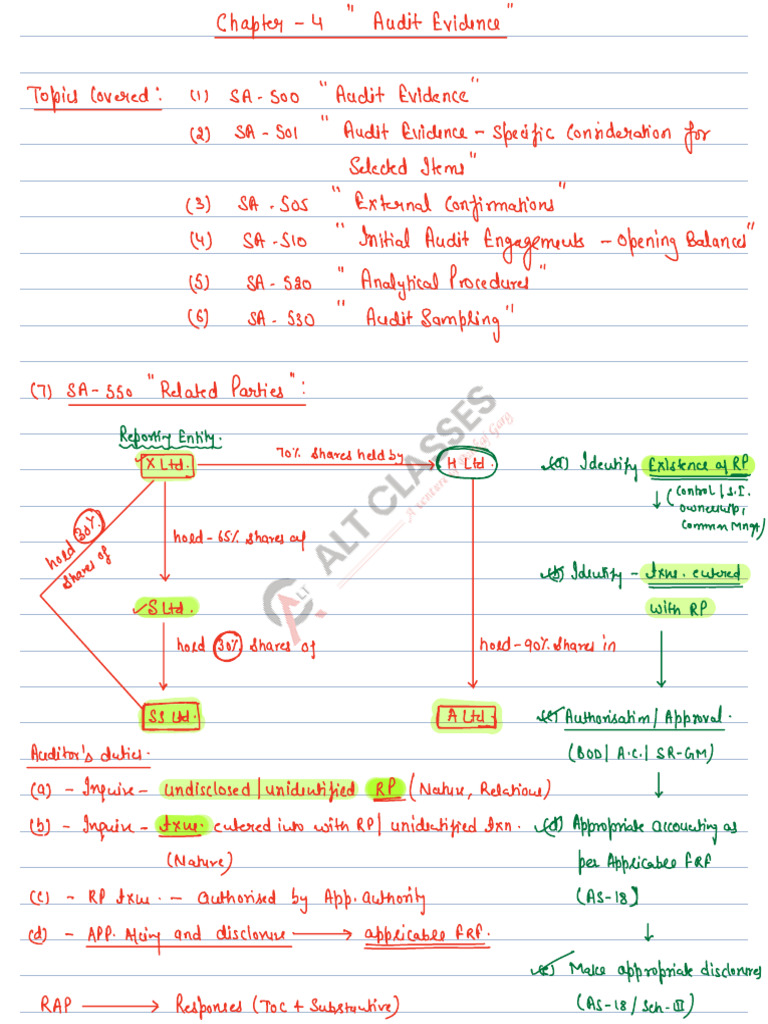 Chapter - 4 " Audit Evidence"
Topics Covered: (1) SA-500 "Audit Evidence"
(2) SA-501 "Audit Evidence - Specific Consideration for
Selected Items"
(3) SA-505 "External Confirmations"
(4) SA-510 "Initial Audit Engagements - Opening Balances"
(5) SA-520 "Analytical Procedures"
(6) SA-530 "Audit Sampling"
(7) SA-550 "Related Parties":
Reporting Entity.
X Ltd.
70% shares held by
H Ltd
hold 30%
shares of
hold - 65% shares of
S Ltd.
hold 30% shares of
hold - 90% shares in
SS Ltd.
A Ltd.
(a) Identify Existence of RP
(Control/S.I.
ownership,
Common Mngt)
(b) Identify - txns. entered
with RP
(c) Authorisation/Approval.
(BOD/A.C./SR-GM)
(d) Appropriate accounting as
per Applicable FRF
(AS-18)
(e) Make appropriate disclosures
(AS-18/Sch-III)
Auditor's duties.
(a) - Inquire - undisclosed/unidentified RP (Nature, Relations)
(b) - Inquire - txns. entered into with RP/unidentified txn.
(Nature)
(c) - RP txns. - authorised by App. authority
(d) - APP. A/cing and disclosure → applicable FRF.
RAP → Responses (TOC + Substantive)
ALT CLASSES
ALT